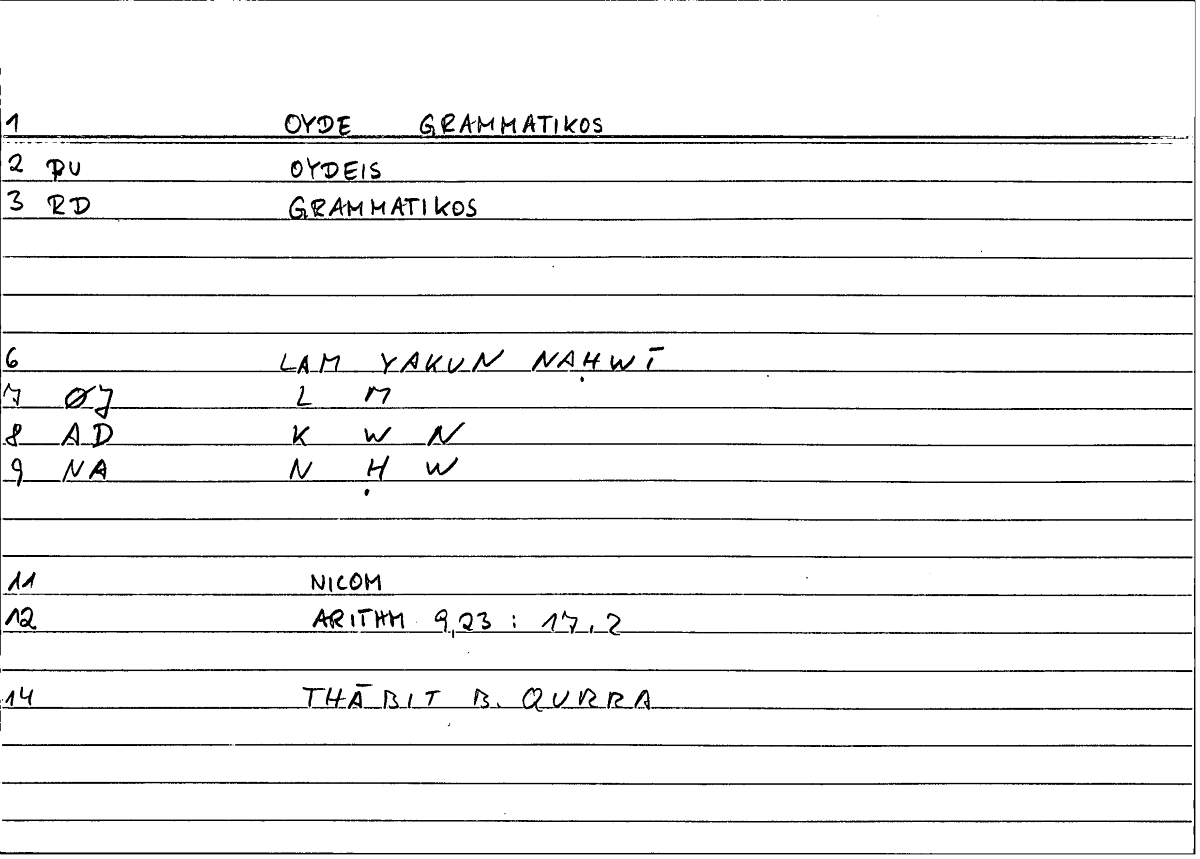 1 OYDE GRAMMATIKOS
2 PU OYDEIS
3 RD GRAMMATIKOS
6 LAM YAKUN NAḤWĪ
7 ØJ L M
8 AD K W N
9 NA N Ḥ W
11 NICOM
12 ARITHM 9,23 : 17,2
14 THĀBIT B. QURRA